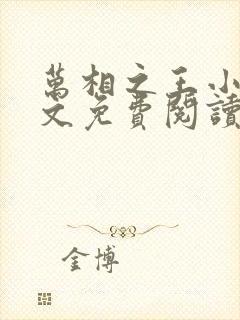 萬相之王小
文免費閱讀
金博